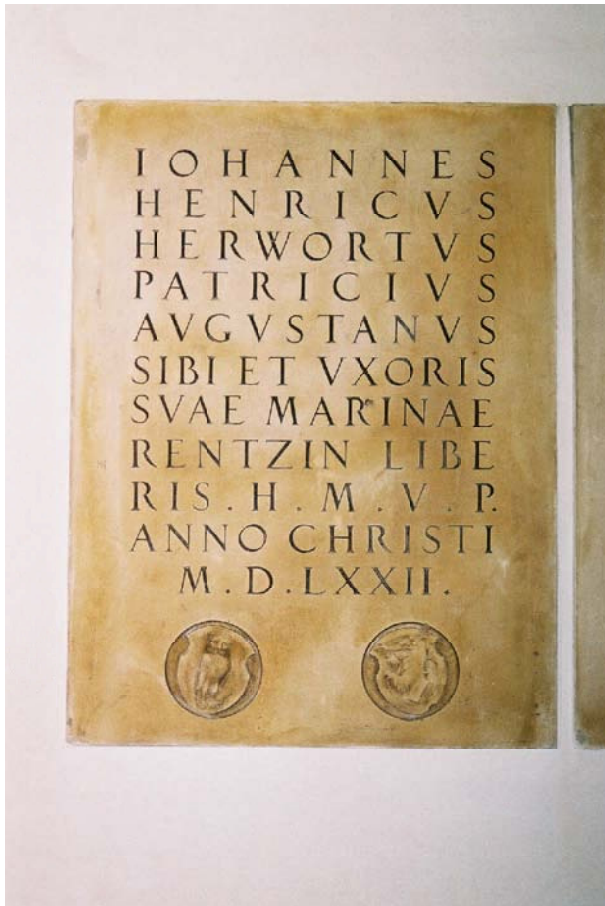 IOHANNES
HENRICVS
HERWORTVS
PATRICIVS
AVGVSTANVS
SIBI ET VXORIS
SVAE MARINAE
RENTZIN LIBE
RIS . H . M . V . P.
ANNO CHRISTI
M . D . LXXII .